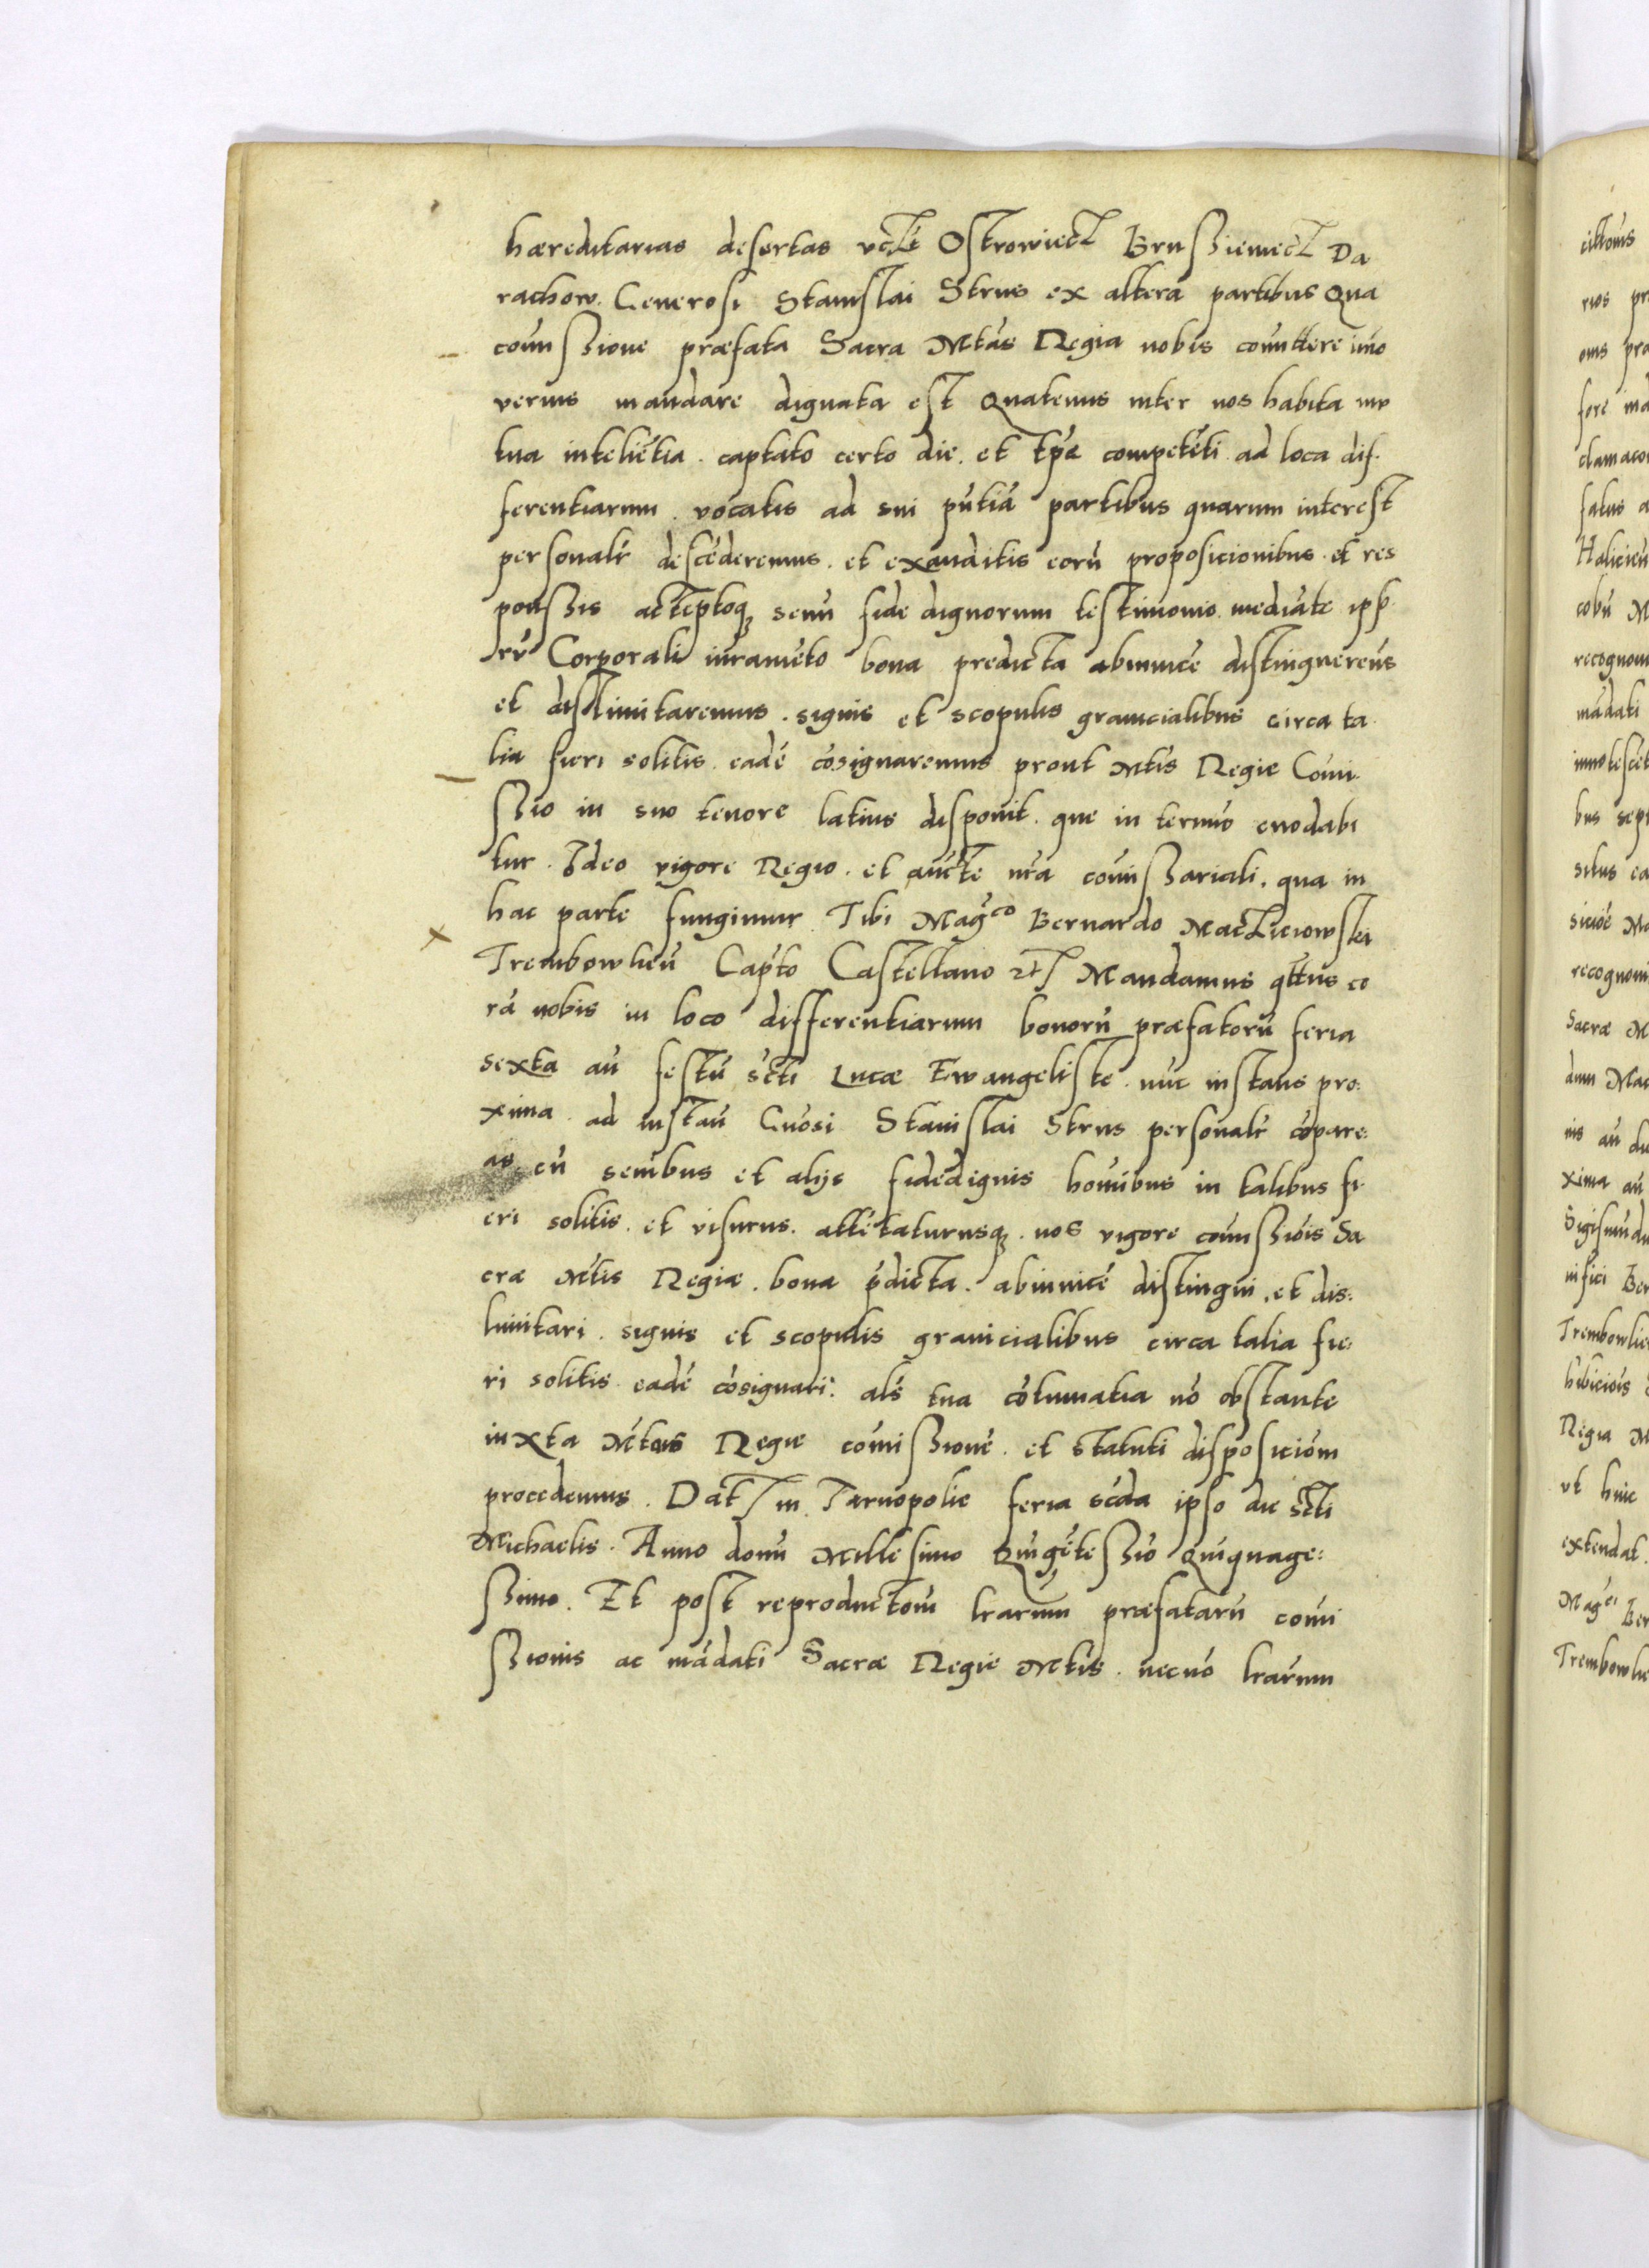 hæreditarias desertas vcꝫt Ostrowiecz Brussieniecz Da
rachow. Generosi Stanislai Strus ex altera partibus Qua
comissione præfata Sacra Mtas Regia nobis comittere imo
verius mandare dignata est Quatenus inter nos habita mu
tua inteliẽtia. captato certo die. et tpe competẽti ad loca dif.
ferentiarum. vocatis ad sui pñtiã partibus quarum interest
personalr descẽderemus. et exauditis eorũ proposicionibus. et res
ponssis acceptoq senũ fide dignorum testimonio mediãte ipso
rũ Corporali iuramẽto bona predicta abinuicẽ distinguerems
et dislimitaremus. signis et scopulis granicialibus circa ta.
lia fieri solitis. eadẽ cõsignaremus prout Mtis Regie Comi.
ssio in suo tenore latius disponit. que in termĩo enodabi
tur. Ideo vigore Regio. et aucte nrã comissariali. qua in
hac parte fungimur Tibi Magco Bernardo Macziciowski
Trembowlieñ Capto Castellano etc Mandamus qttus co
rã nobis in loco differentiarum bonorũ præfatorũ feria
sexta añ festũ scti Lucæ Ewangeliste. nũc instans pro:
xima. ad instañ Gnosi Stanislai Strus personalr cõpare:
as cũ senibus et alijs fidedignis homĩbus in talibus fi
eri solitis. et visurus. attẽtaturusq. nos vigore comissiõis Sa
cræ Mtis Regiæ. bona pdicta. abinuicẽ distingui. et dis:
limitari. signis et scopulis granicialibus circa talia fie:
ri solitis eadẽ cõsignari: als tua cõtumatia nõ obstante
iuxta Mtas Regie comissionẽ. et statuti disposiciõm
procedemus. Dat in Tarnopolie feria scda ipso die scti
Michaelis. Anno domĩ Millesimo Quĩgẽtessĩo Quiquage:
ssimo. Et post reproductõm lrarum præfatarũ comi
ssionis ac mãdati Sacræ Regie Mtis. necnõ lrarum